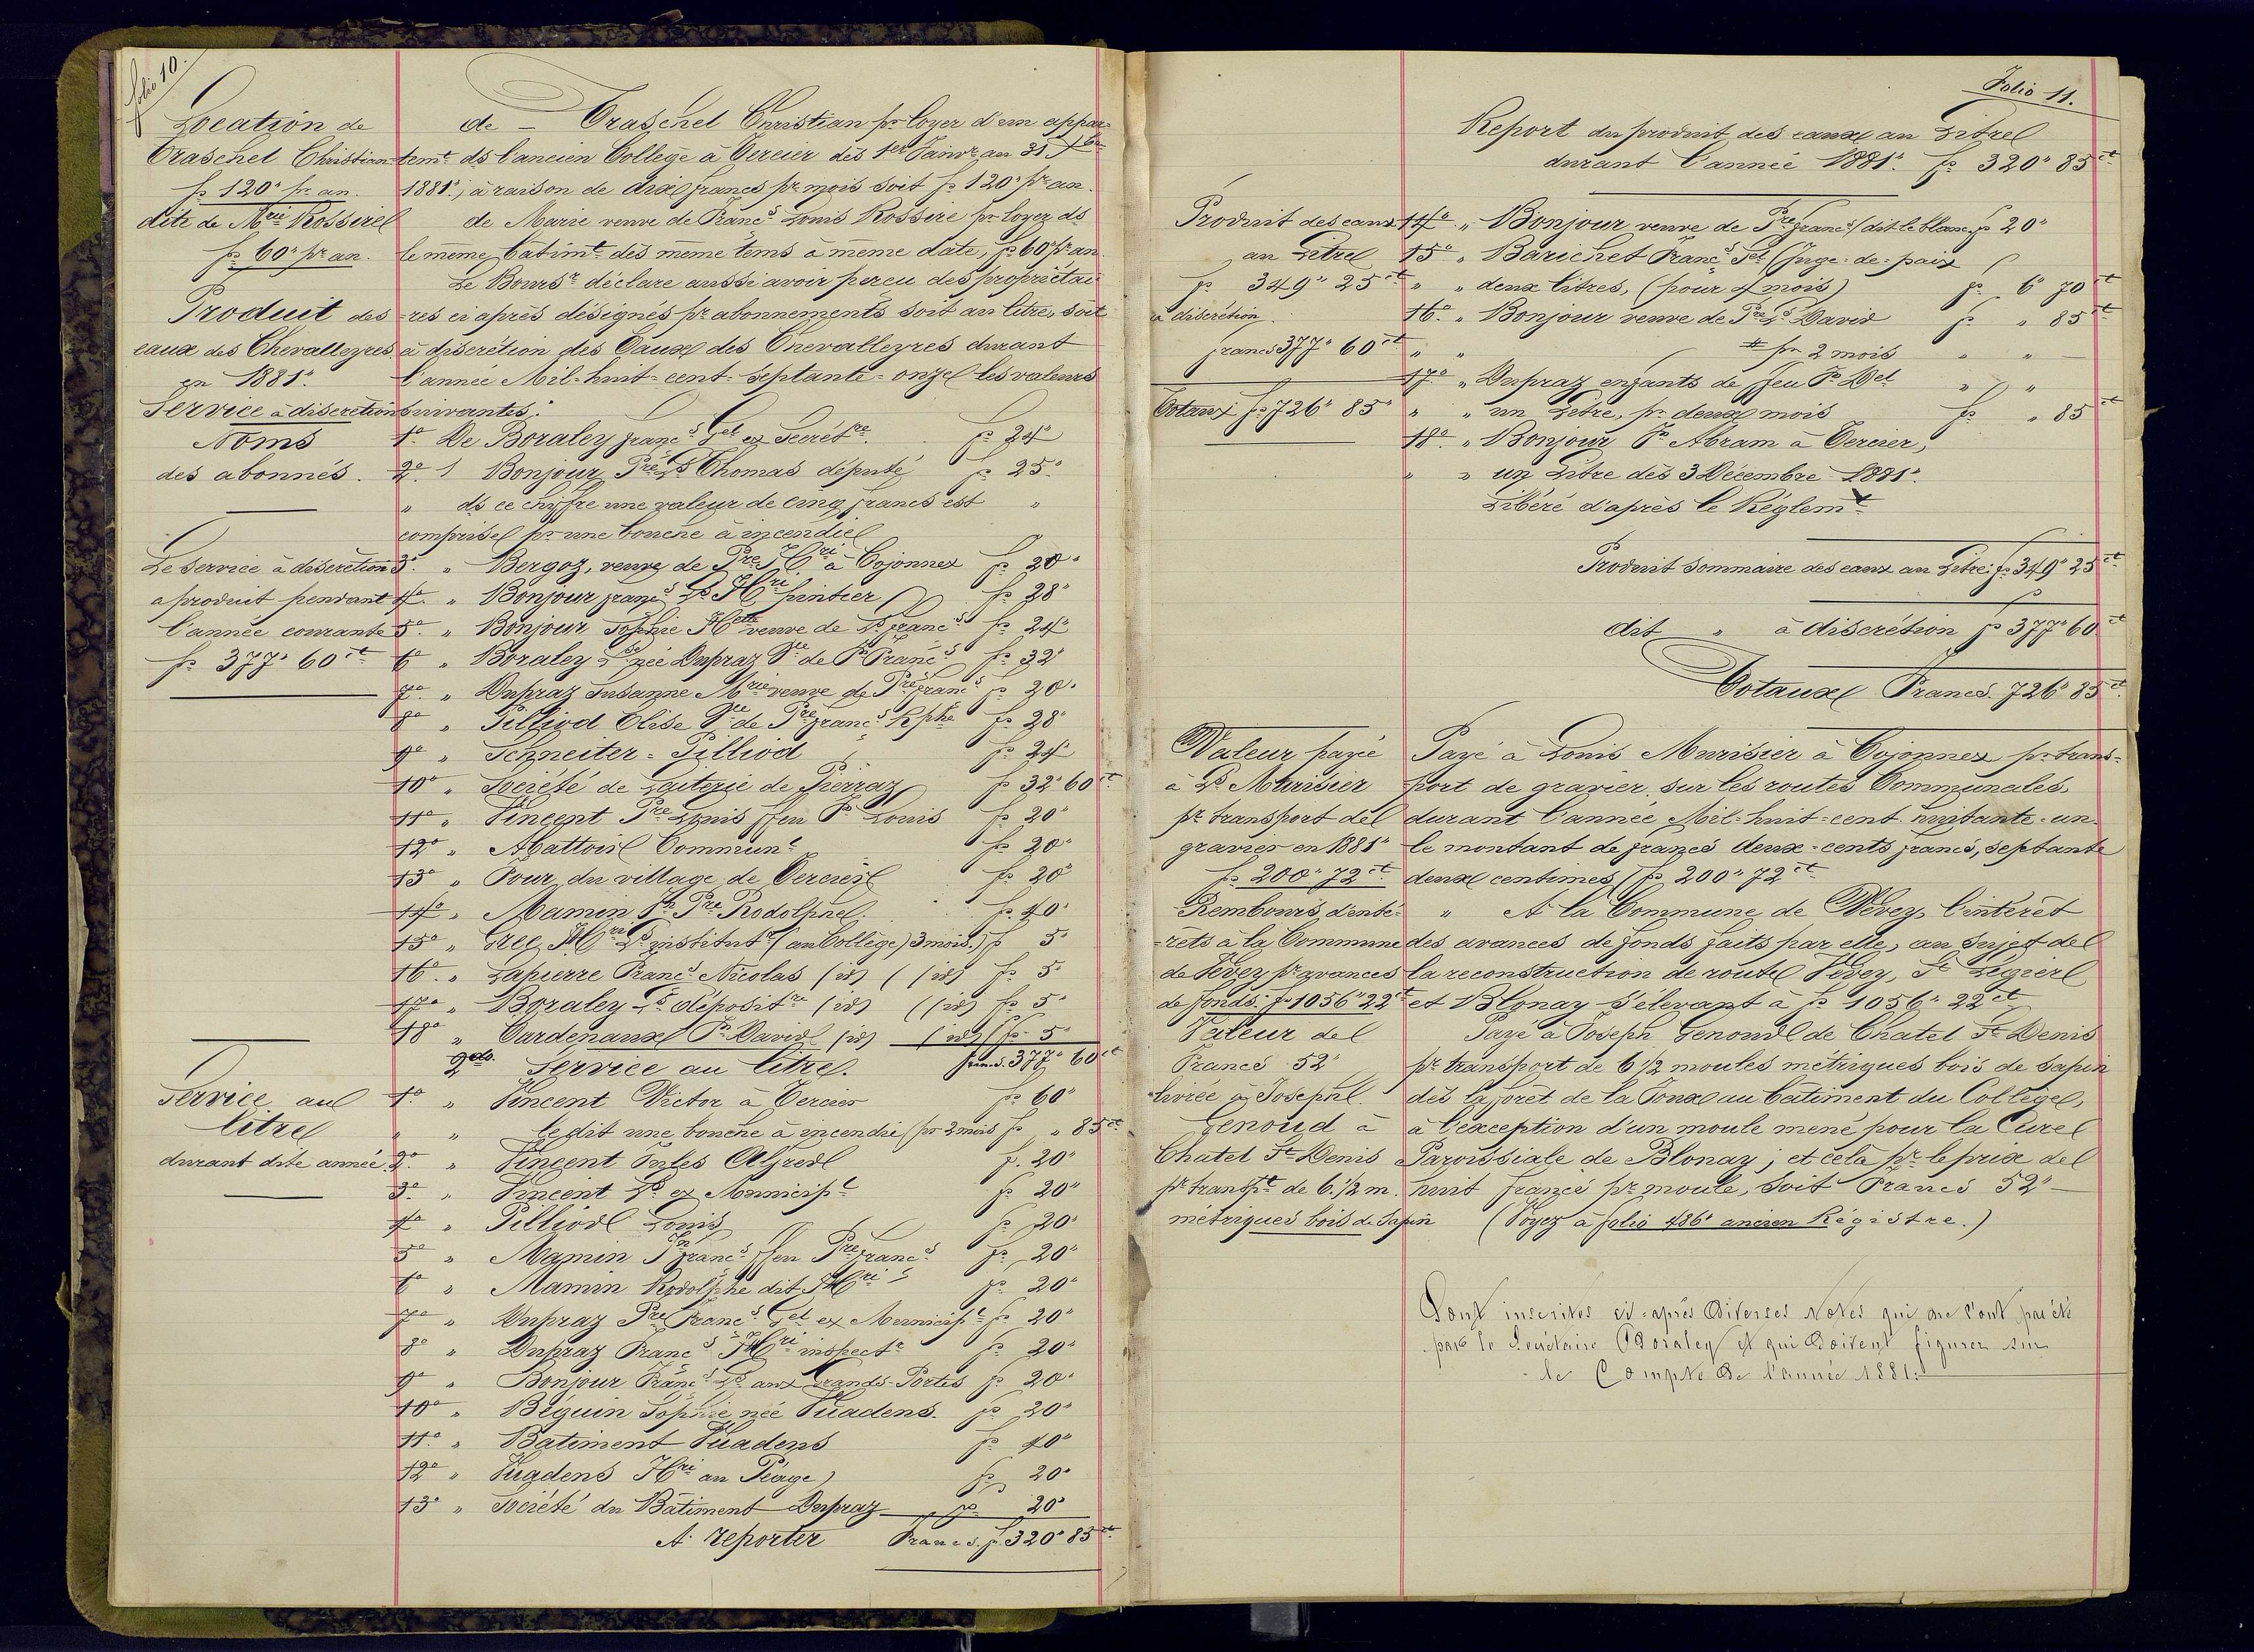 folio 10.
Location de
Traschel Christian
fs 120" pr an.
dite de Mrie Rossire
fs 60" pr an.
Produit des
eaux des Chevalleyres
en 1881".
Service à discrétion
Noms
des abonnés.
Le service à discrétion
a produit pendant
l'année courante
fs 377" 60ct
Service au
litre
durant dite année
de – Traschel Christian pr loyer d'un appar-
temt ds l'ancien Collège à Tercier dès 1er Janvr au 31 Xbre
1881", à raison de dix francs pr mois soit fs 120" pr an.
de Marie veuve de Francs Louis Rossire pr loyer ds
le même bâtimt dès même tems à même date, fs 60" pr an.
Le Boursr déclare aussi avoir perçu des propriétai-
-res ci après désignés pr abonnements soit au litre, soit
à discrétion des Eaux des Chevalleyres durant
l'année Mil-huit-cent-septante-onze les valeurs
suivantes:
1o De Boraley Francs Gel ex Secrétre fs 24"
2o " Bonjour Pre Ls Thomas député fs 25"
" ds ce chiffre une valeur de cinq francs est "
comprise pr une bouche à incendie
3o " Bergoz, veuve de Pre J. Hri à Cojonnex fs 20"
4o " Bonjour Francs Ls Hri pintier fs 28"
5o " Bonjour Sophie Htte veuve de Ls Francs fs 24"
6o " Boraley Lse née Dupraz Ve de Jn Francs fs 32"
7o " Dupraz Susanne Mrie veuve de Pre Francs fs 20"
8o " Pilliod Elise Ve de Pre Francs Jph fs 28"
9o " Schneiter-Pilliod fs 24"
10o " Société de Laiterie de Pierraz fs 32" 60ct
11o " Vincent Pre Louis ffeu Jn Louis fs 20"
12o " Abattoir Commune fs 20"
13o " Four du village de Tercier fs 20"
14o " Mamin Jn Pre Rodolphe fs 40"
15o " Gree Hri Ls institutr (au Collège) 3 mois.) fs 5"
16o " Lapierre Francs Nicolas (id) (id) fs 5"
17o " Boraley Ls dépositre (id) (id) fs 5"
18o " Cardenaux Jn David (id) (id) fs 5"
2do. Service au litre. francs. 377" 60ct
1o " Vincent Victor à Tercier fs 60"
" " le dit une bouche à incendie (pr 2 mois fs " 85ct
2o " Vincent Jules Alfred fs 20"
3o " Vincent Ls ex Municipl fs 20"
4o " Pilliod Louis fs 20"
5o " Mamin Jn Francs ffeu Pre Francs fs 20"
6o " Mamin Rodolphe dit Hri fs 20"
7o " Dupraz Pre Francs Gel ex Municipl fs 20"
8o " Dupraz Francs Hri inspectr fs 20"
9o " Bonjour Francs Ls aux Grands-Portes fs 20"
10o " Béguin Sophie née Vuadens. fs 20"
11o " Batiment Vuadens fs 40"
12o " Vuadens Hri au Péage) fs 20"
13o " Société du Bâtiment Dupraz fs 20"
A reporter Francs. fs 320" 85ct
Folio 11.
Report du produit des eaux au Litre
durant l'année 1881". fs 320" 85ct
Produit des eaux
au Litre
fs 349" 25ct
à discrétion
francs 377" 60ct
Totaux fs 726" 85"
14o " Bonjour veuve de Pre Francs dit le blanc fs 20"
15o " Barichet Francs Gel (Juge-de-paix
" " deux litres, (pour 4 mois) fs 6" 70ct
16o " Bonjour veuve de Pre Ls David fs " 85ct
" " # pr 2 mois " "
17o " Dupraz enfants de ffeu Jn Del " "
" " un Litre, pr deux mois fs " 85ct
18o " Bonjour Jn Abram à Tercier,
" " un Litre dès 3 Décembre 1881".
Libéré d'après le Réglemt
Produit Sommaire des eaux au Litre: fs 349" 25ct
dit " à discrétion fs 377" 60ct
Totaux Francs. 726" 85ct
Valeur payée
à Ls Murisier
pr transport de
gravier en 1881"
fs 200" 72ct
Rembours. d'inté-
-rêts à la Commune
de Vevey pr avances
de fonds. fs 1056" 22ct
Valeur de
Francs 52"
livrée à Joseph
Genoud à
Chatel St Denis
pr transpt de 6 1/2 m.
métriques bois de Sapin
Payé à Louis Murisier à Cojonnex pr trans-
port de gravier sur les routes Communales,
durant l'année Mil-huit-cent huitante-un
le montant de francs deux-cents francs, septante
deux centimes, fs 200" 72ct
" A la Commune de Vevey l'intérêt
des avances de fonds faits par elle, au sujet de
la reconstruction de route Vevey, St Légier
et Blonay s'élevant à fs 1056" 22ct
Payé à Joseph Genoud de Chatel St Denis
pr transport de 6 1/2 moules métriques bois de sapin
dès la forêt de la Joux au bâtiment du Collège,
à l'exception d'un moule mené pour la Cure
Paroissiale de Blonay; et cela pr le prix de
huit francs pr moule, soit Francs 52"
(Voyez à folio 486" ancien Régistre.)
Sont inscrites ci-après Diverses Notes qui ne l'ont pas été
par le Secrétaire Boraley et qui doivent figurer sur
le Compte de l'année 1881.